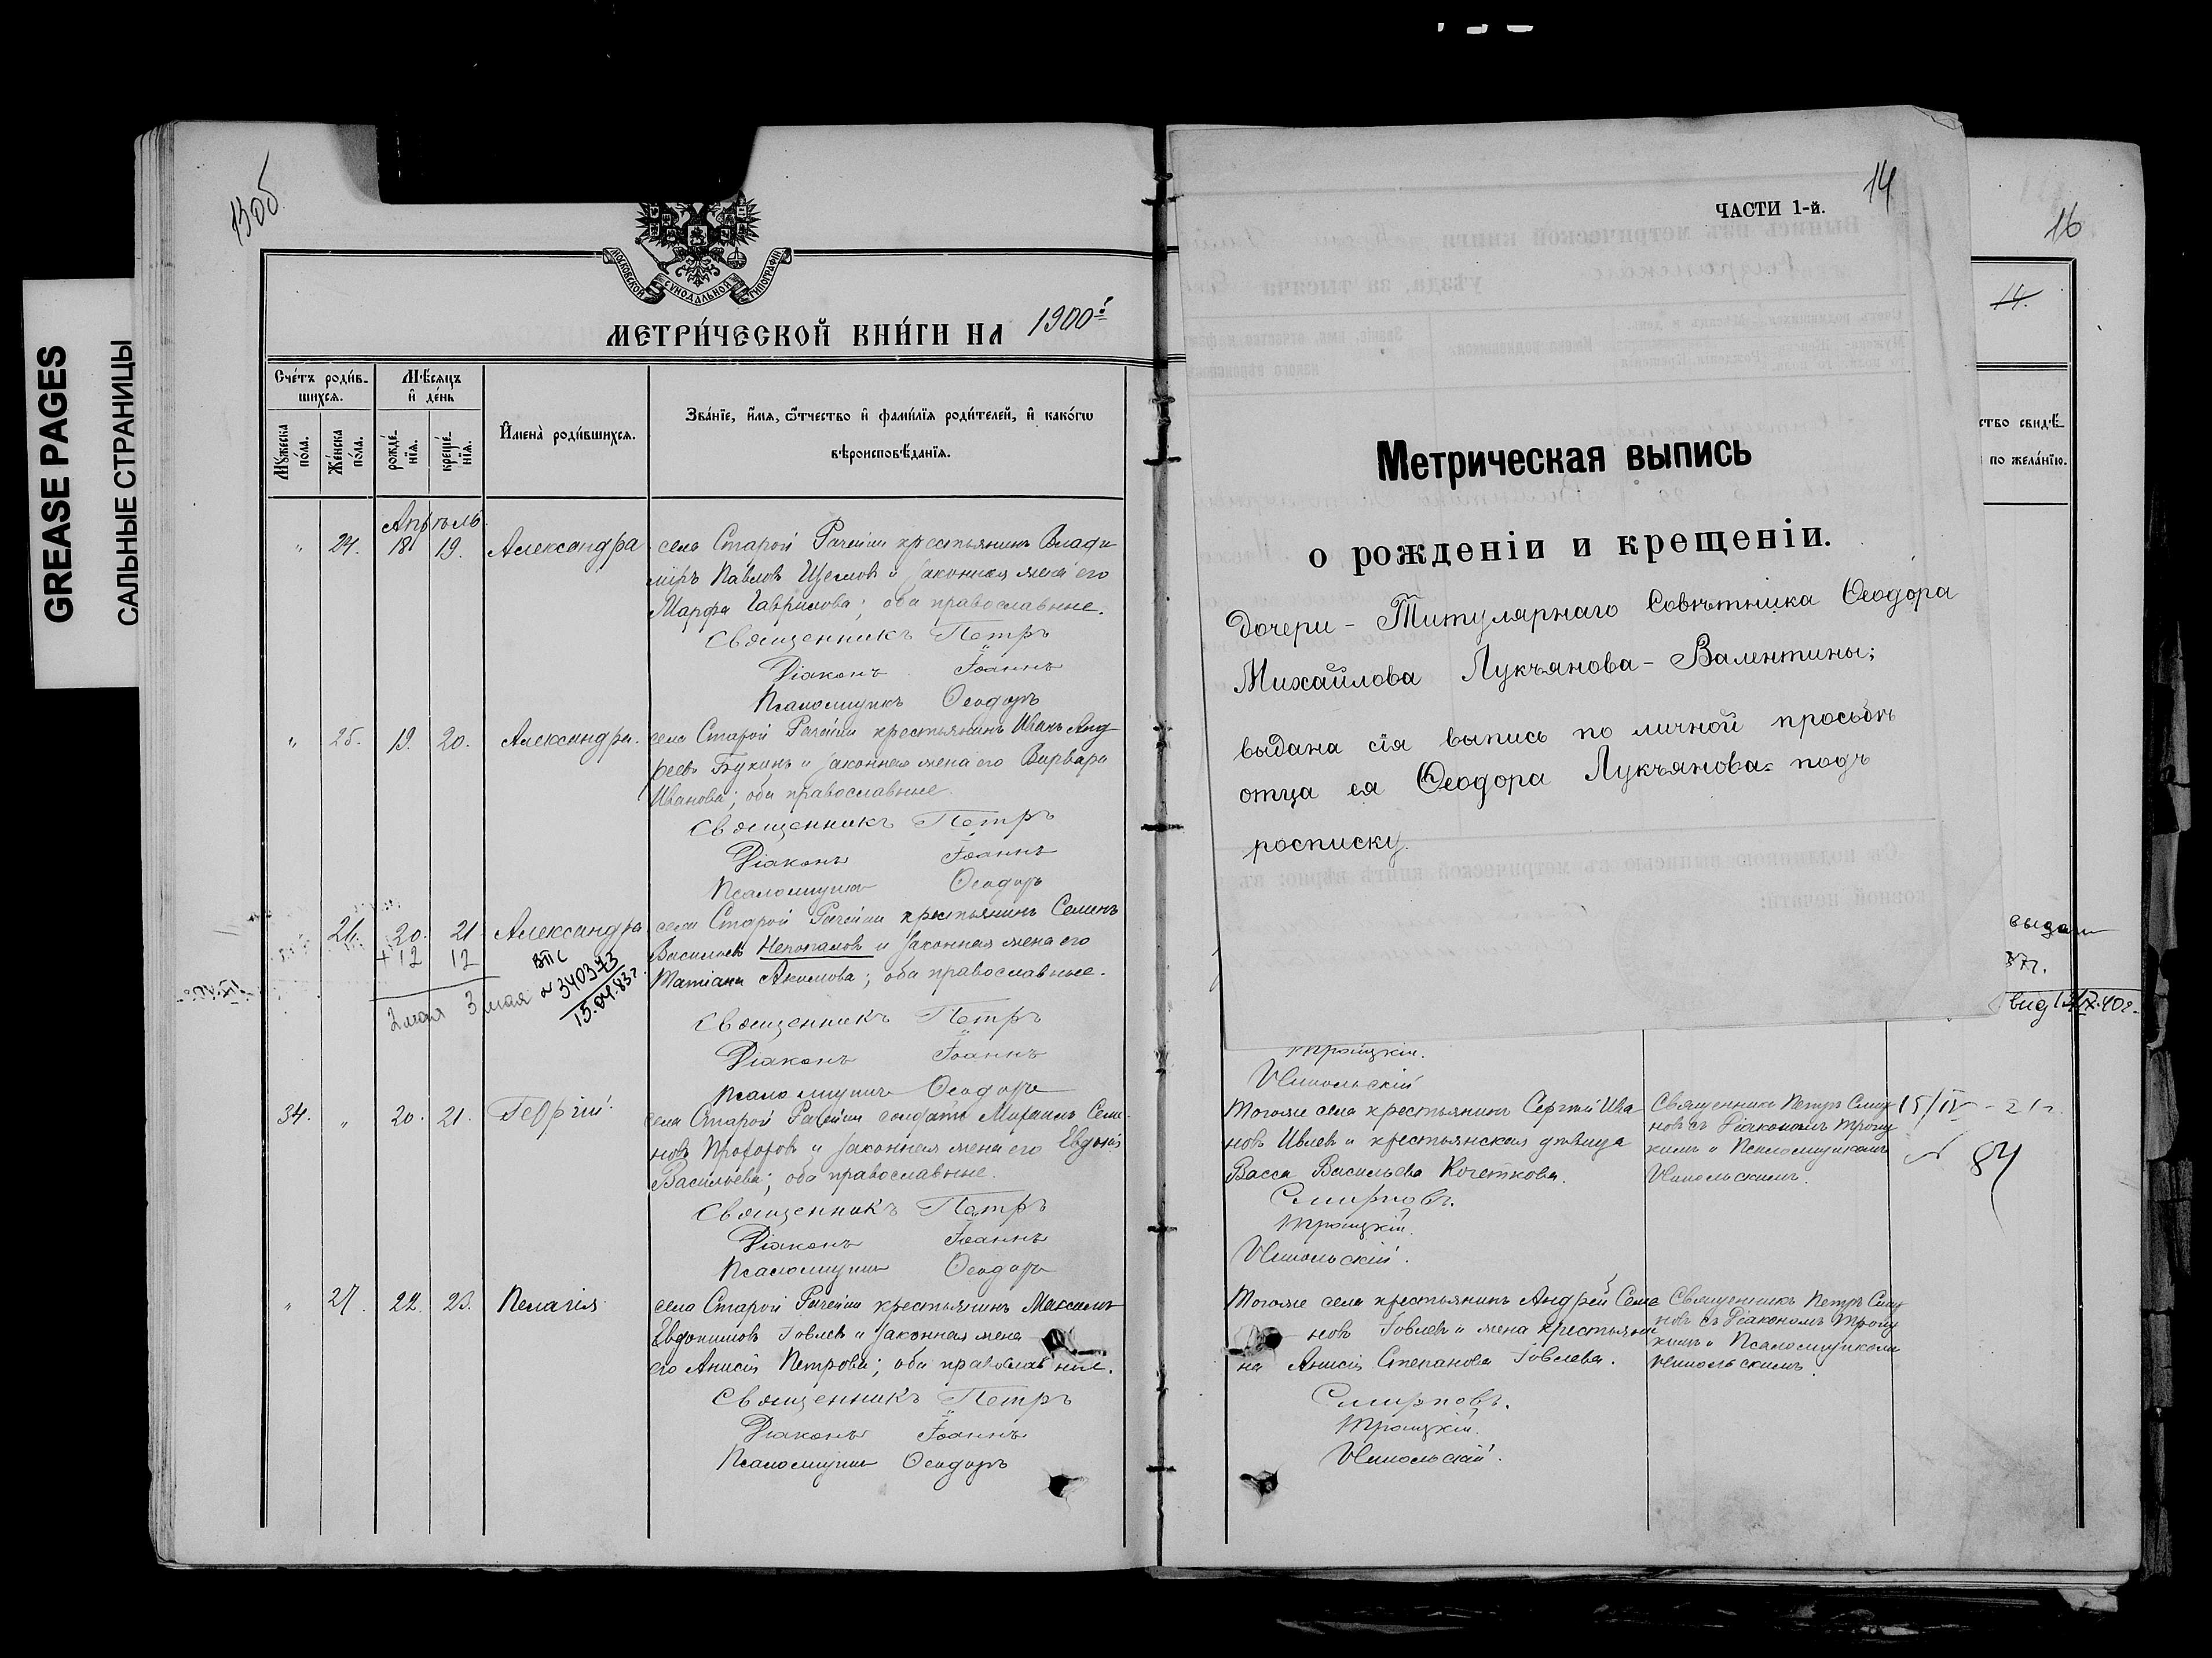 GREASE PAGES
САЛЬНЫЕ СТРАНИЦЫ
13об
МОСКОВСКОЙ СУНОДАЛЬНОЙ ТИПОГРАФІИ
МЕТРИ́ЧЕСКОЙ КНИ́ГИ НА 1900й
Сче́тъ роди́в-
шихся.
Мѣ́сяцъ
и҆ де́нь
Мꙋ́жеска
по́ла.
Же́нска
по́ла.
рожде́-
нїя.
креще́-
нїя.
И҆мена̀ роди́вшихся.
Зва́нїе, и҆́мя, ѻ҆́тчество и҆ фами́лїя роди́телей, и҆ како́гѡ
вѣроисповѣ́данїя.
Апрѣль
" 24. 18 19. Александра села Старой Рачейки крестьянинъ Влади
міръ Павловъ Щегловъ и законная жена его
Марфа Гаврилова; оба православные.
Священникъ Петръ
Діаконъ Іоаннъ
Псаломщикъ Ѳеодоръ
" 25. 19. 20. Александра. села Старой Рачейки крестьянинъ Иванъ Анд
реевъ Букинъ и законная жена его Варвара
Иванова; оба православные.
Священникъ Петръ
Діаконъ Іоаннъ
Псаломщикъ Ѳеодоръ
26. 20. 21 Александра села Старой Рачейки крестьянинъ Семенъ
+12 12
Васильевъ Непопаловъ и законная жена его
Татіана Акимова; оба православные.
2 мая 3 мая
340373
15.04.83г.
Священникъ Петръ
Діаконъ Іоаннъ
Псаломщикъ Ѳеодоръ
34. " 20. 21. Георгій. села Старой Рачейки солдатъ Михаилъ Семе-
новъ Прохоровъ и законная жена его Евдокія
Васильева; оба православные.
Священникъ Петръ
Діаконъ Іоаннъ
Псаломщикъ Ѳеодоръ
" 27. 22. 23. Пелагія села Старой Рачейки крестьянинъ Максимъ
Евдокимовъ Іовлевъ и законная жена
его Анисія Петрова; оба православные.
Священникъ Петръ
Діаконъ Іоаннъ
Псаломщикъ Ѳеодоръ
14
ЧАСТИ 1-й.
Метрическая выпись
о рожденіи и крещеніи.
дочери - Титулярнаго Совѣтника Ѳеодора
Михайлова Лукъянова - Валентины;
выдана сія выпись по личной просьбѣ
отца ея Ѳеодора Лукъянова = подъ
росписку.
16
14.
ство свидѣ́-
по жела́нїю.
Троицкій.
Никольскій
Тогоже села крестьянинъ Сергѣй Ива
новъ Ивлевъ и крестьянская дѣвица
Васса Васильева Кочеткова.
Смирновъ.
Троицкій.
Никольскій.
Священникъ Петръ Смир
новъ съ Діакономъ Трои
кимъ и Псаломщикомъ
Никольскимъ.
15/IV - 21г.
№ 84
Тогоже села крестьянинъ Андрей Семе
новъ Іовлевъ и жена крестьяни
на Анисія Степанова Іовлева.
Смирновъ.
Троицкій.
Никольскій.
Священникъ Петръ Смир
новъ съ Діакономъ Трои
кимъ и Псаломщикомъ
Никольскимъ.